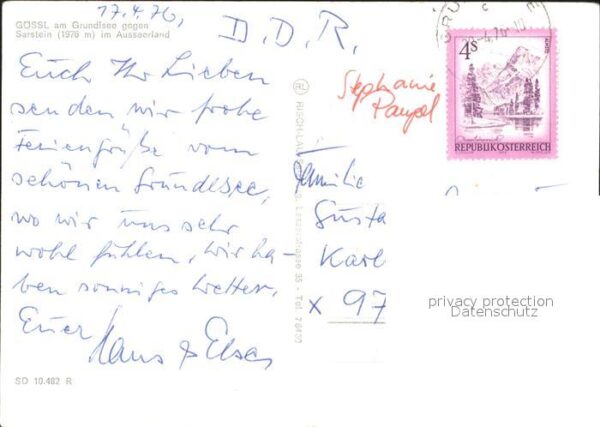 17.4.76,
GÖSSL am Grundlsee gegen
Sarstein (1976 m) im Ausseerland
D. D. R.
Euch Ihr Lieben
senden wir frohe
Feriengrüße vom
schönen Grundlsee,
wo wir uns sehr
wohl fühlen, wir ha-
ben sonniges Wetter,
Euer
Hans & Elsa
SD 10.482 R
35 - Tel.
Stephanie
4s
REPUBLIK ÖSTERREICH
Familie
Gusta
Karl
x 97
privacy protection
Datenschutz